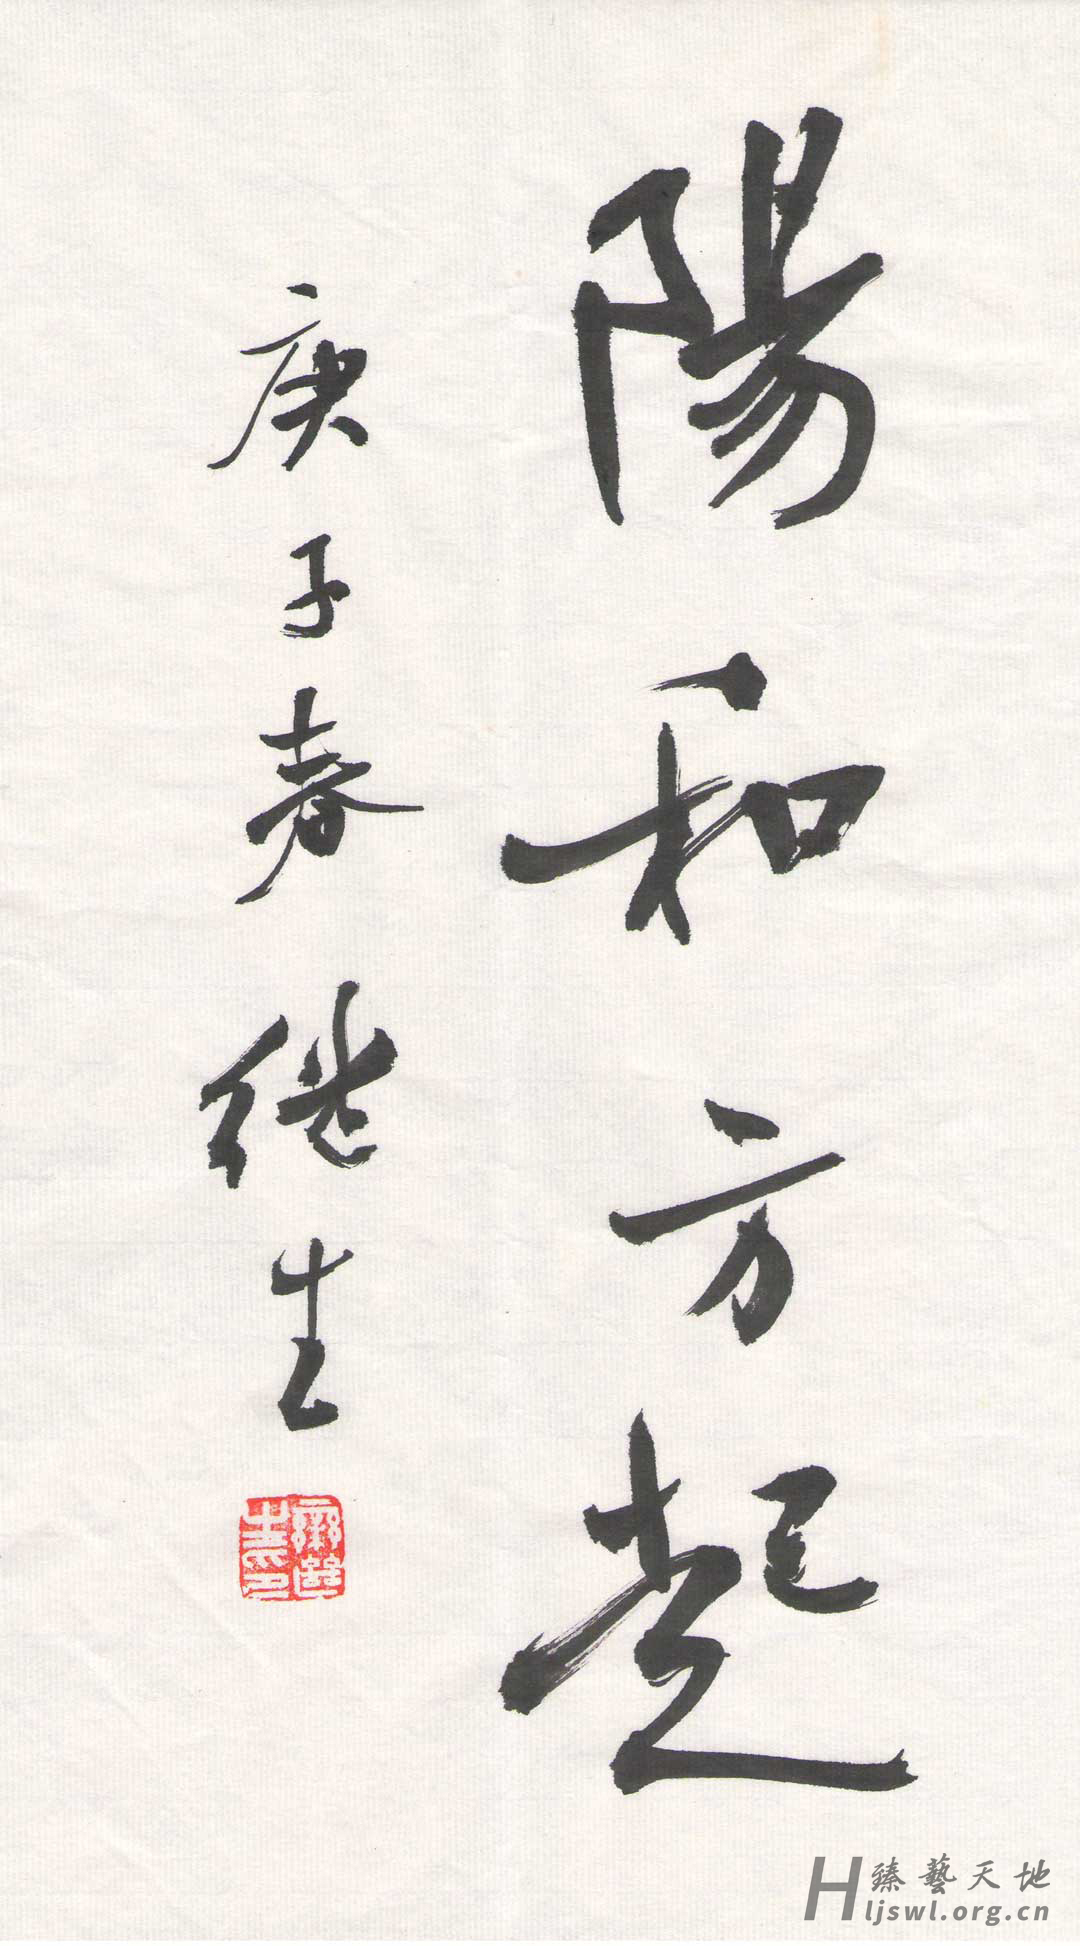 陽和方起
庚子春 继生
臻藝天地
ljswl.org.cn